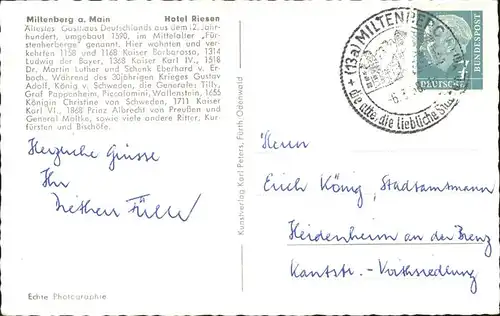 Miltenberg a. Main Hotel Riesen
Ältestes Gasthaus Deutschlands aus dem 12. Jahr-
hundert, umgebaut 1590, im Mittelalter „Für-
stenherberge" genannt. Hier wohnten und ver-
kehrten 1158 und 1168 Kaiser Barbarossa, 1314
Ludwig der Bayer, 1368 Kaiser Karl IV., 1518
Dr. Martin Luther und Schenk Eberhard v. Er-
bach. Während des 30jährigen Krieges Gustav
Adolf, König v. Schweden, die Generale: Tilly,
Graf Pappenheim, Piccolomini, Wallenstein, 1655
Königin Christine von Schweden, 1711 Kaiser
Karl VI., 1868 Prinz Albrecht von Preußen und
General Moltke, sowie viele andere Ritter, Kur-
fürsten und Bischöfe.
Herzliche Grüsse
Ihr
Echte Photographie
Kunstverlag Karl Peters, Fürth, Odenwald
(13a) MILTENBERG
die alte, die liebliche
DEUTSCHE
BUNDESPOST
Herrn
Erich König, Stadtamtmann
Heidenheim an der Brenz
Kantstr. - Voithsiedlung